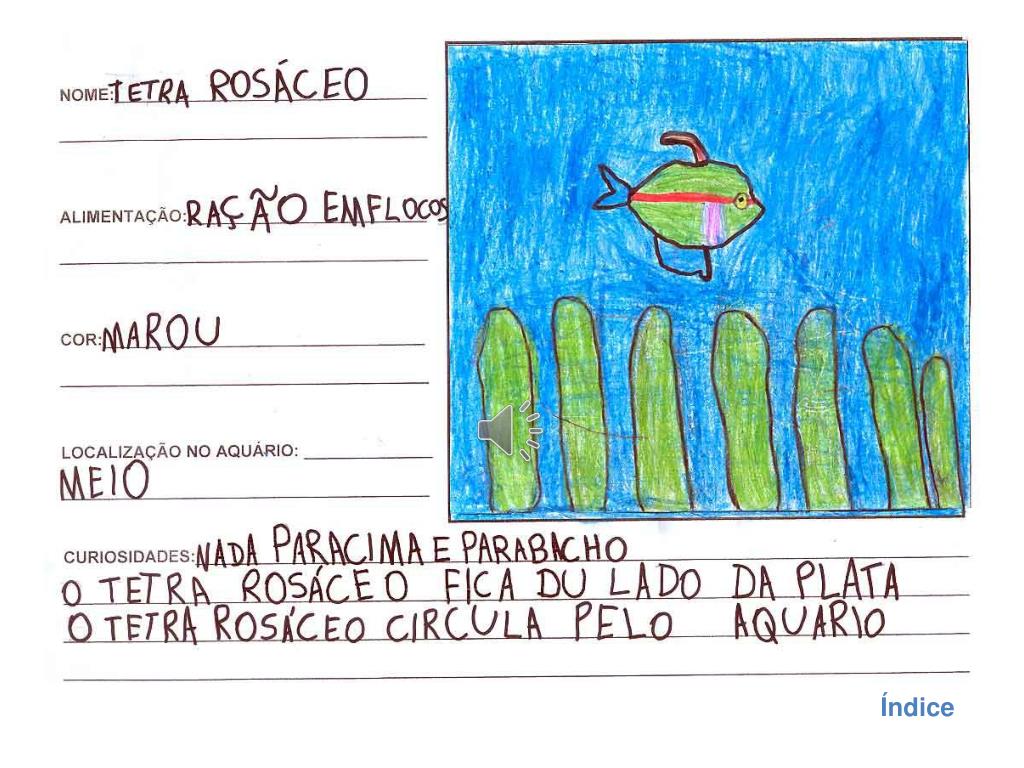 NOME:TETRA ROSÁCEO
ALIMENTAÇÃO:RAÇÃO EMFLOCOS
COR:MAROU
LOCALIZAÇÃO NO AQUÁRIO:
MEIO
CURIOSIDADES:NADA PARACIMA E PARABACHO
O TETRA ROSÁCEO FICA DU LADO DA PLATA
O TETRA ROSÁCEO CIRCULA PELO AQUARIO
Índice